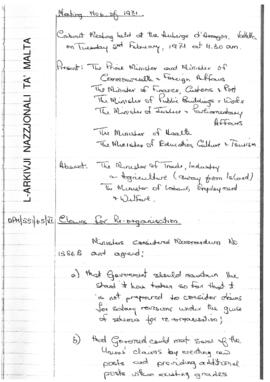 L-ARKIVJI NAZZJONALI TA' MALTA
Meeting No. 6 of 1971.
Cabinet Meeting held at the Auberge d'Aragon, Valletta
on Tuesday 2nd February, 1971 at 4.30 am.
Present: The Prime Minister and Minister of
Commonwealth & Foreign Affairs
The Minister of Finance, Customs & Port
The Minister of Public Buildings & Works
The Minister of Justice & Parliamentary
Affairs
The Minister of Health
The Minister of Education, Culture & Tourism
Absent: The Minister of Trade, Industry
& Agriculture (away from Island)
The Minister of Labour, Employment
& Welfare.
Claims for Re-organisation.
Ministers considered Memorandum No
1586B and agreed;
a) that Government should maintain the
stand it has taken so far that it
is not prepared to consider claims
for salary revisions under the guise
of schemes for re-organisation;
b) that Government could meet some of the
Union's claims by creating new
posts and providing additional
posts within existing grades